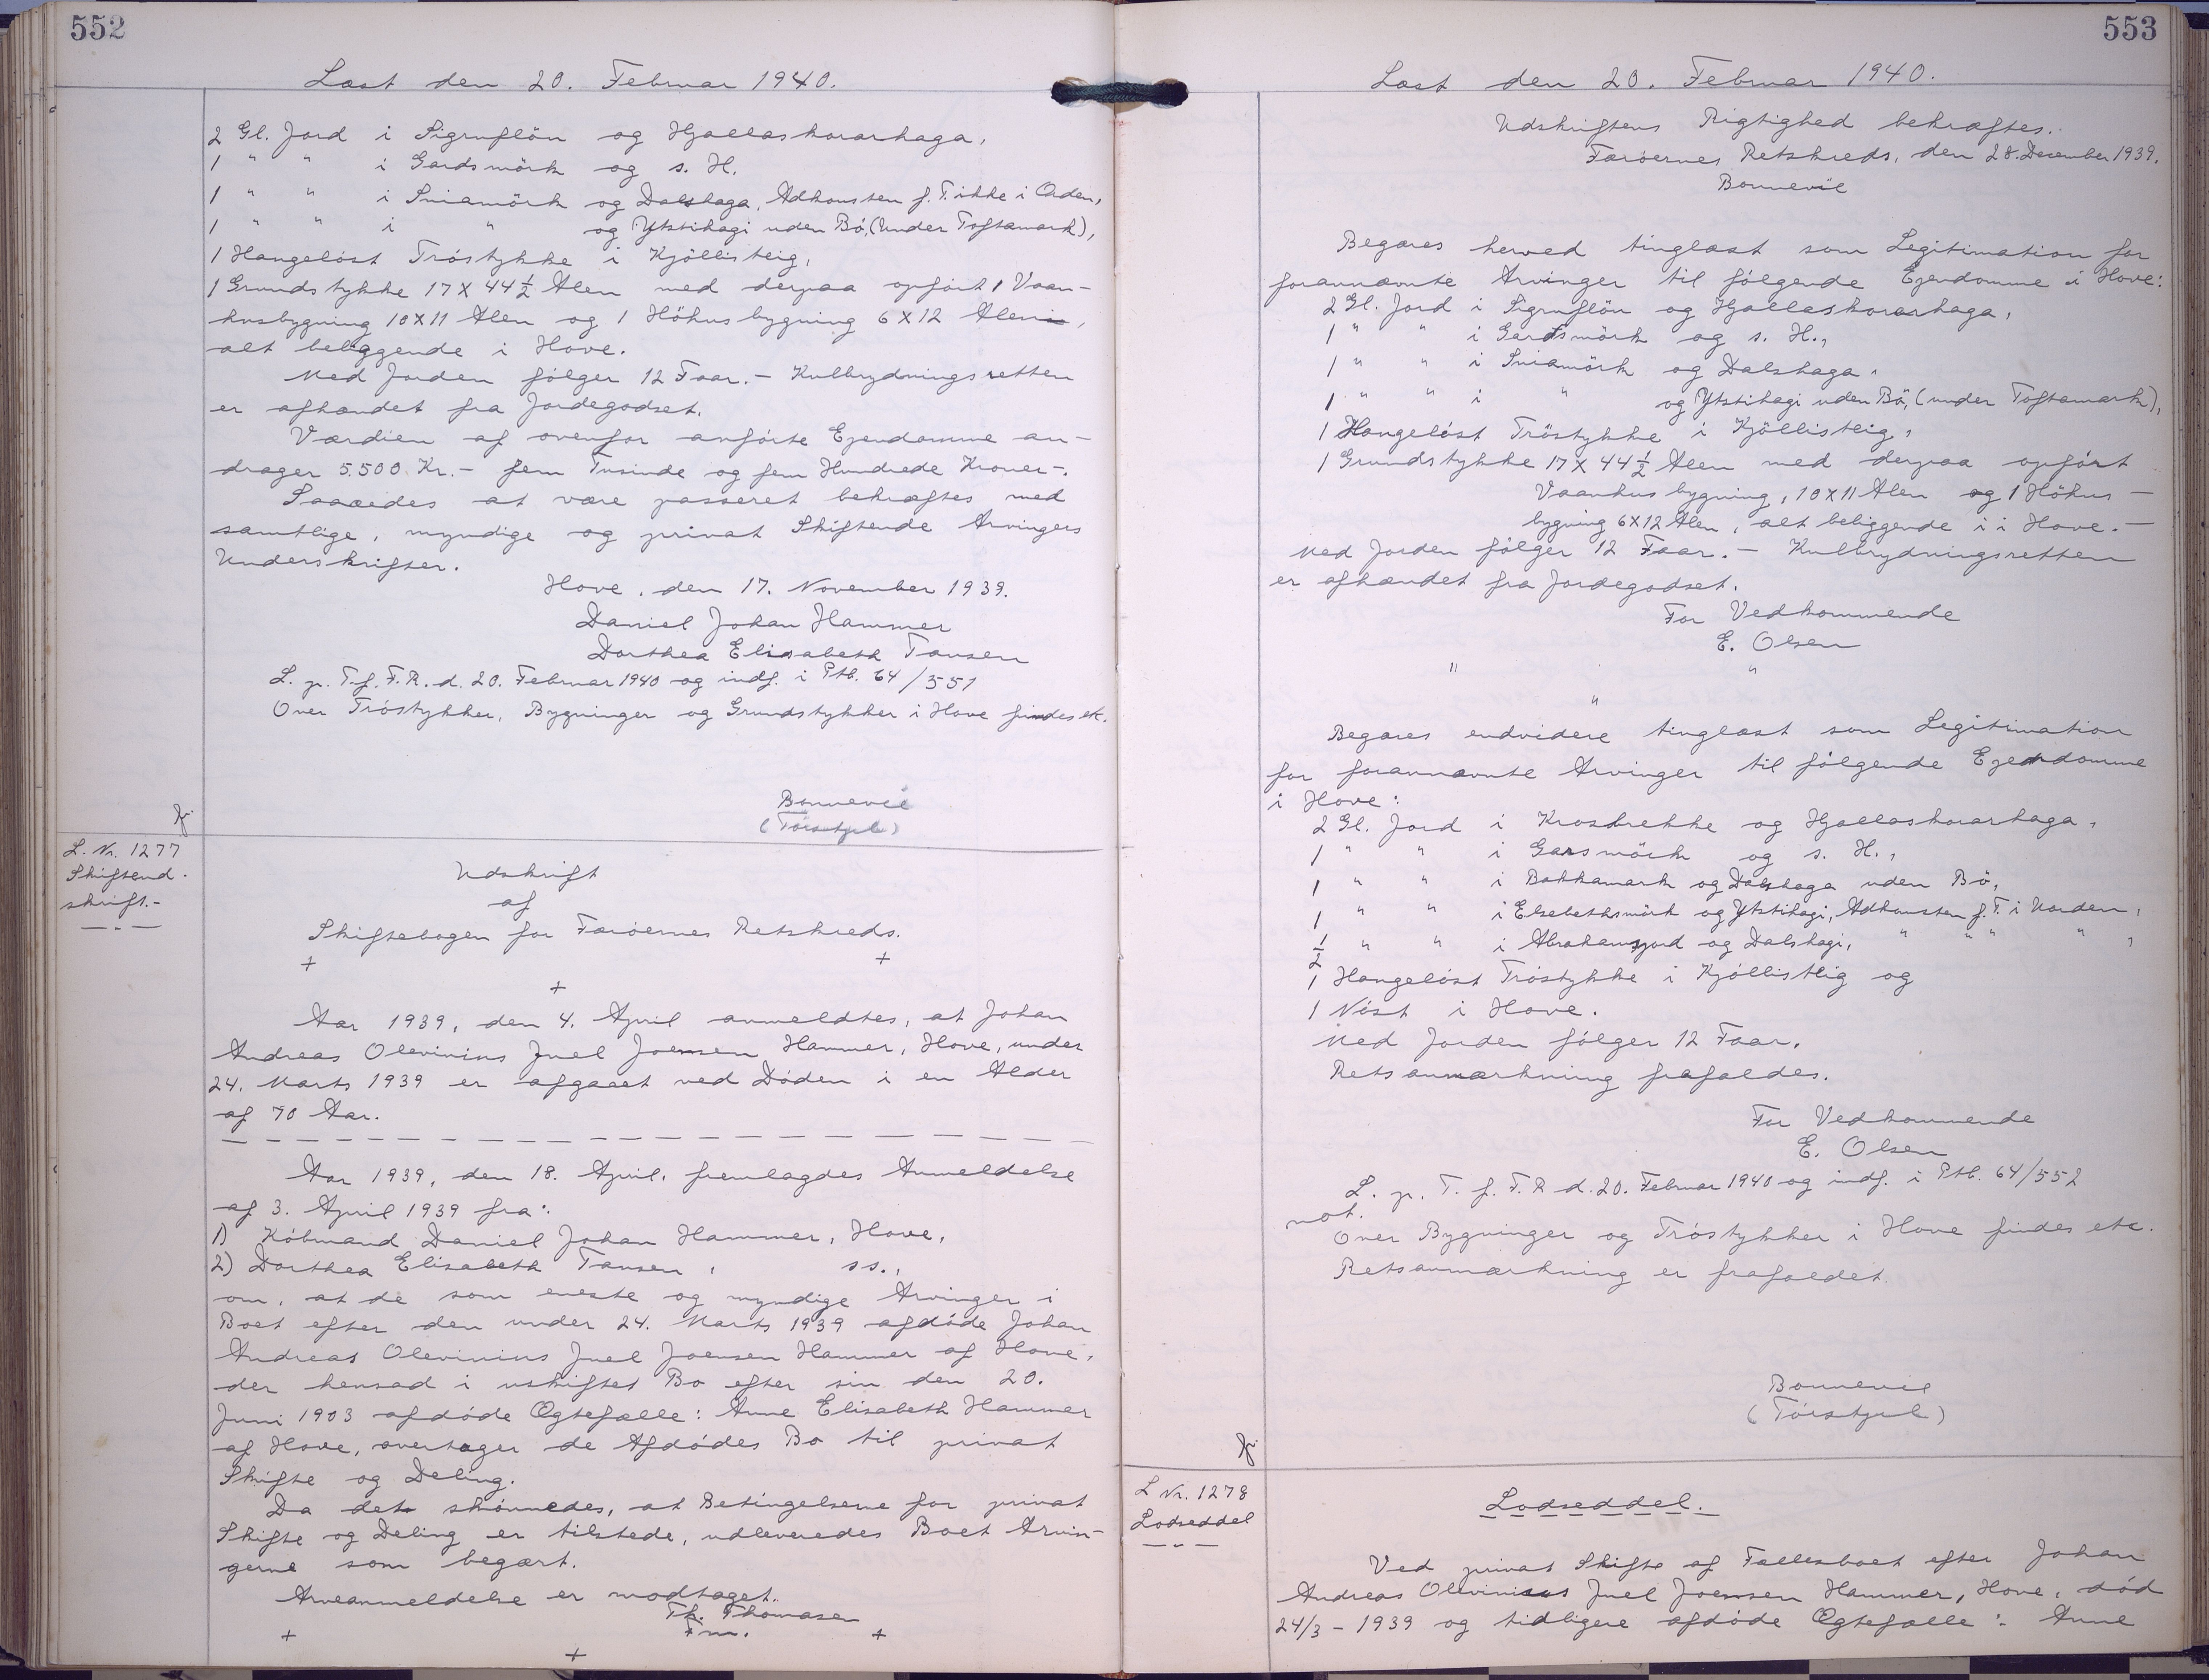 552
Læst den 20. Februar 1940.
2 Gl. Jord i Sigruflön og Hjallaskorarhaga,
1 " " i Gardsmörk og s. H.
1 " " i Sniamörk og Dalshaga, Adkomsten f. T. ikke i Orden,
1 " " i " og Ytstihagi uden Bö, (under Toftamark),
1 Hangelöst Tröstykke i Kjöllisteig,
1 Grundstykke 17 X 44 1/2 Alen med derpaa opfört 1 Vaan-
husbygning 10X11 Alen og 1 Höhusbygning 6 X 12 Alen,
alt beliggende i Hove.
Med Jorden fölger 12 Faar. - Kulbrydningsretten
er afhændet fra Jordegodset.
Værdien af ovenfor anförte Ejendomme an-
drager 5.500 Kr. - fem Tusinde og fem Hundrede Kroner -.
Saaledes at være passeret bekræftes med
samtlige, myndige og privat Skiftende Arvingers
Underskrifter.
Hove, den 17. November 1939.
Daniel Johan Hammer
Dorthea Elisabeth Tausen
L. p. T. f. F. R. d. 20. Februar 1940 og indf. i Ptb. 64/551
Over Tröstykker, Bygninger og Grundstykker i Hove findes etc.
Bonnevie
(Törstjel)
L. Nr. 1277
Skifteud-
skrift.-
Udskrift
af
Skiftebogen for Færöernes Retskreds.
+ +
+
Aar 1939, den 4. April anmeldtes, at Johan
Andreas Olevinius Juel Joensen Hammer, Hove, under
24. Marts 1939 er afgaaet ved Döden i en Alder
af 70 Aar.
Aar 1939, den 18. April, fremlagdes Anmeldelse
af 3. April 1939 fra:
1) Köbmand Daniel Johan Hammer, Hove,
2) Dorthea Elisabeth Tausen, ss.,
om, at de som eneste og myndige Arvinger i
Boet efter den under 24. Marts 1939 afdöde Johan
Andreas Olevinius Juel Joensen Hammer af Hove,
der hensad i uskiftet Bo efter sin den 20.
Juni 1903 afdöde Ægtefælle: Anne Elisabeth Hammer
af Hove, overtager de Afdödes Bo til privat
Skifte og Deling.
Da det skönnedes, at Betingelserne for privat
Skifte og Deling er tilstede, udleveredes Boet Arvin-
gerne som begært.
Arveanmeldelse er modtaget.
Th. Thomasen
Fm.
+ +
+
553
Læst den 20. Februar 1940.
Udskriftens Rigtighed bekræftes.
Færöernes Retskreds, den 28. December 1939.
Bonnevie
Begæres herved tinglæst som Legitimation for
forannævnte Arvinger til fölgende Ejendomme i Hove:
2 Gl. Jord i Sigruflön og Hjallaskorarhaga,
1 " " i Gardsmörk og s. H.,
1 " " i Sniamörk og Dalshaga,
1 " " i " og Ytstihagi uden Bö, (under Toftamark),
1 Hangelöst Tröstykke i Kjöllisteig,
1 Grundstykke 17 X 44 1/2 Alen med derpaa opfört
Vaanhusbygning, 10 X 11 Alen og 1 Höhus-
bygning 6X12 Alen, alt beliggende i i Hove. -
Med Jorden fölger 12 Faar. - Kulbrydningsretten
er afhændet fra Jordegodset.
For Vedkommende
E. Olsen
" "
"
Begæres endvidere tinglæst som Legitimation
for forannævnte Arvinger til fölgende Ejendomme
i Hove:
2 Gl. Jord i Krosbrekke og Hjallaskorarhaga,
1 " " i Garsmörk og s. H.,
1 " " i Bakkamark og Dalshaga uden Bö,
1 " " i Elsebethsmörk og Ytstihagi, Adkomsten f. T. i Uorden,
1/2 " " i Abrahamsjord og Dalshagi, " " " " ,
1 Hangelöst Tröstykke i Kjöllisteig og
1 Nöst i Hove.
Med Jorden fölger 12 Faar.
Retsanmærkning frafaldes.
For Vedkommende
E. Olsen
L. p. T. f. F. R d. 20. Februar 1940 og indf. i Ptb. 64/552
not.
Over Bygninger og Tröstykker i Hove findes etc.
Retsanmærkning er frafaldet.
Bonnevie
(Törstjel)
L Nr. 1278
Lodseddel
Lodseddel.
Ved privat Skifte af Fællesboet efter Johan
Andreas Olevinius Juel Joensen Hammer, Hove, död
24/3 - 1939 og tidligere afdöde Ægtefælle: Anne